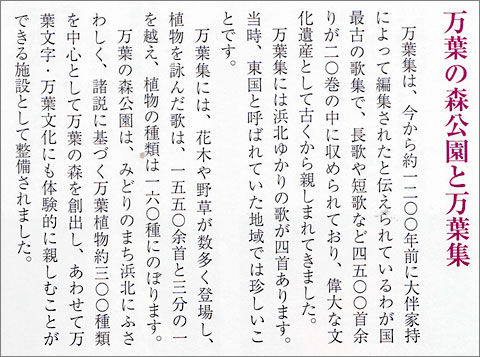 万葉の森公園と万葉集
万葉集は、今から約一二〇〇年前に大伴家持
によって編集されたと伝えられているわが国
最古の歌集で、長歌や短歌など四五〇〇首余
りが二〇巻の中に収められており、偉大な文
化遺産として古くから親しまれてきました。
万葉集には浜北ゆかりの歌が四首あります。
当時、東国と呼ばれていた地域では珍しいこ
とです。
万葉集には、花木や野草が数多く登場し、
植物を詠んだ歌は、一五五〇余首と三分の一
を越え、植物の種類は一六〇種にのぼります。
万葉の森公園は、みどりのまち浜北にふさ
わしく、諸説に基づく万葉植物約三〇〇種類
を中心として万葉の森を創出し、あわせて万
葉文字・万葉文化にも体験的に親しむことが
できる施設として整備されました。